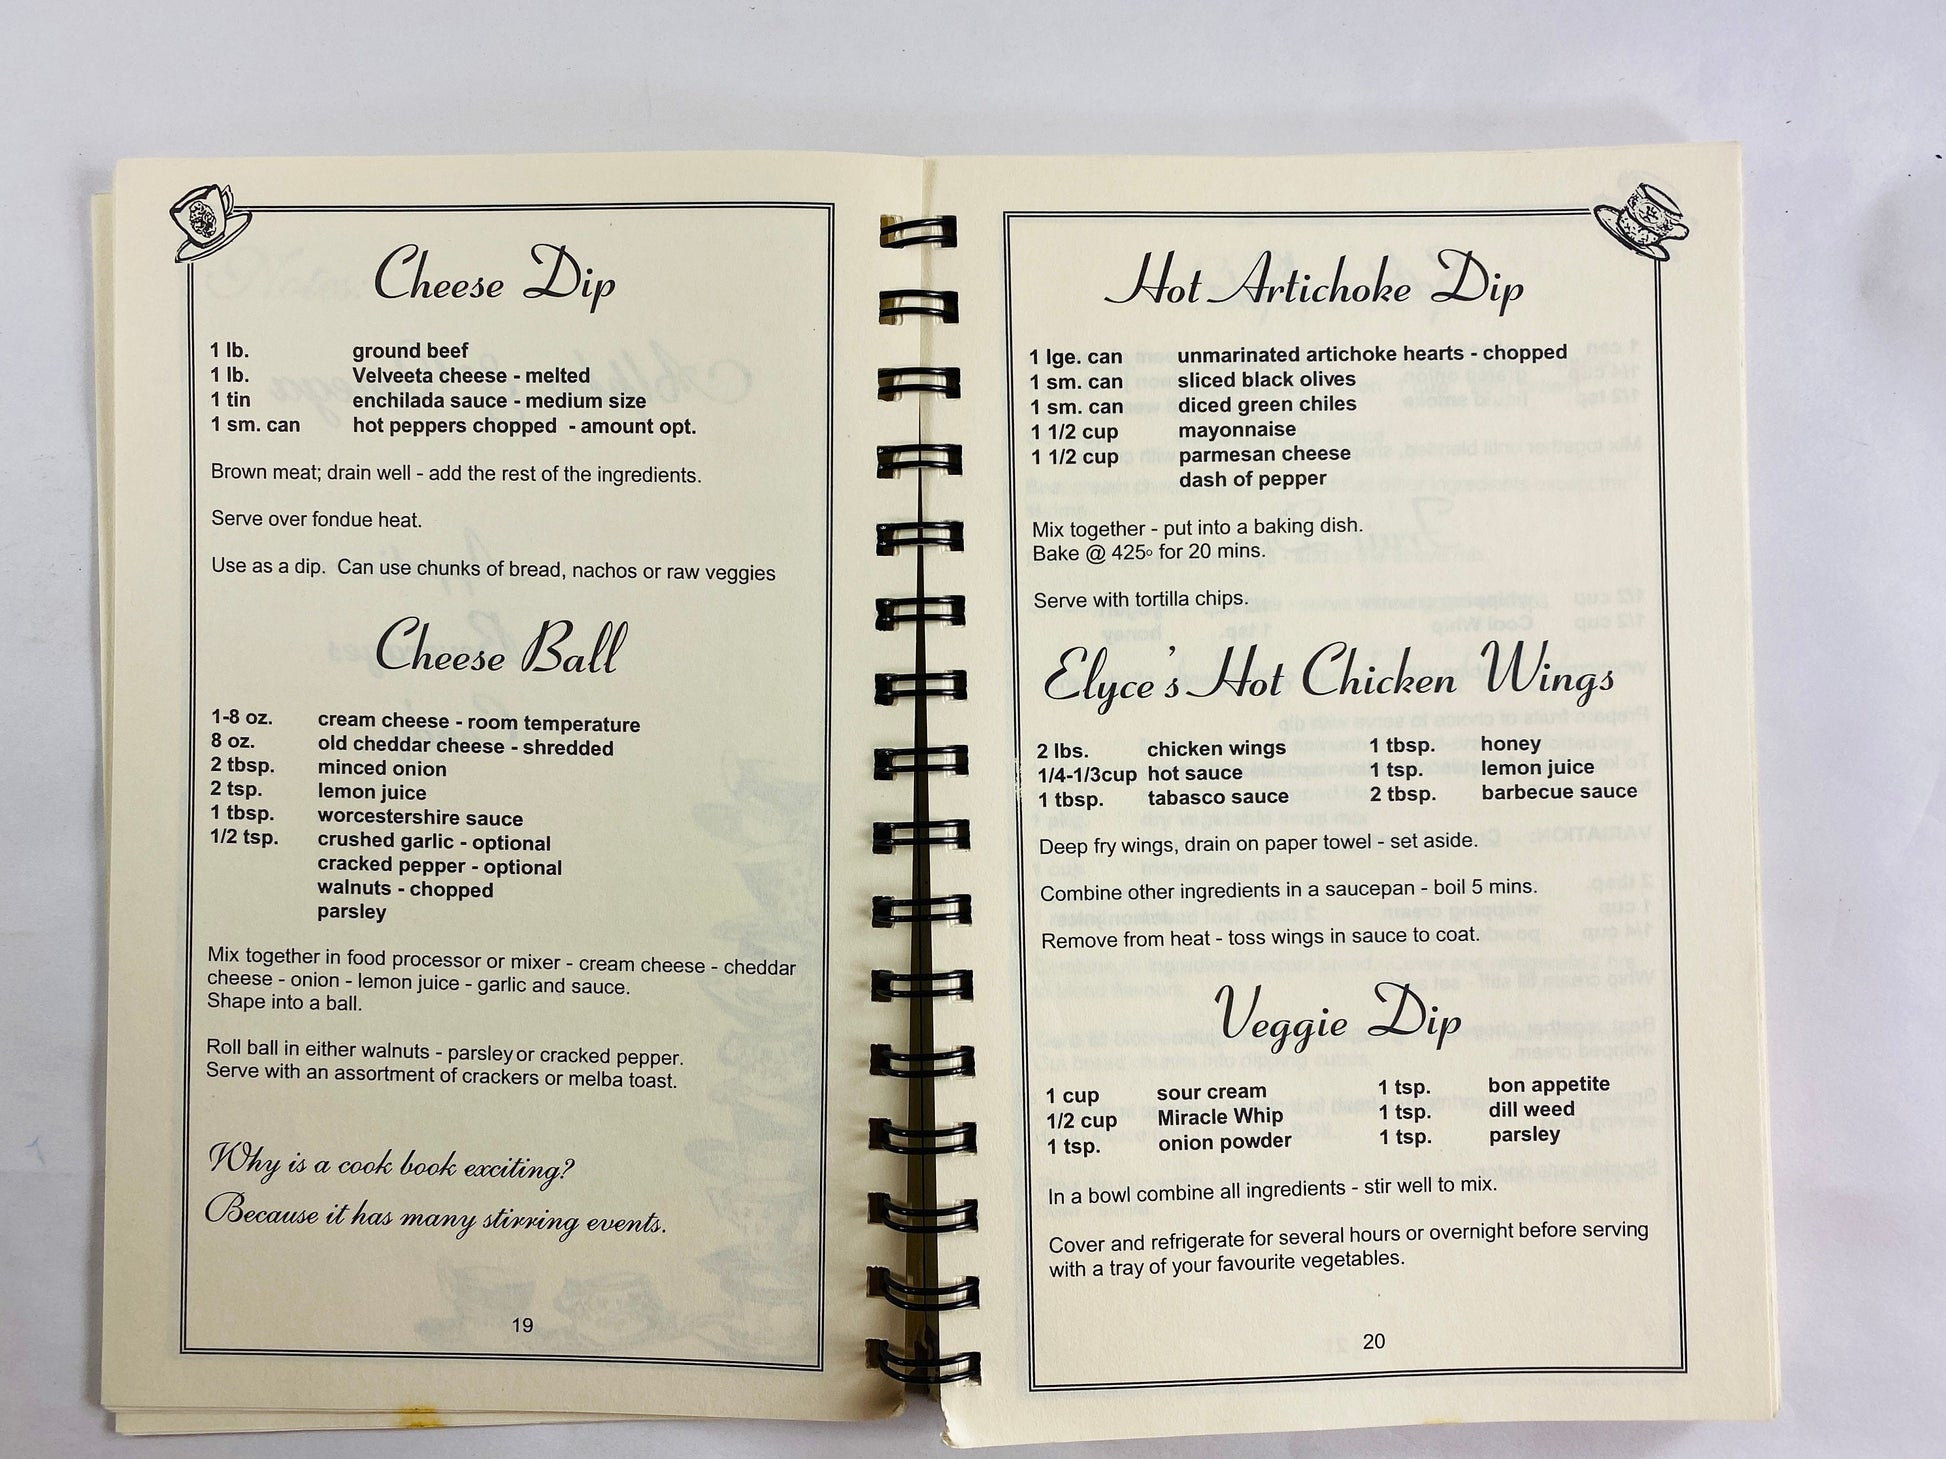 Cheese Dip
1 lb. ground beef
1 lb. Velveeta cheese - melted
1 tin enchilada sauce - medium size
1 sm. can hot peppers chopped - amount opt.
Brown meat; drain well - add the rest of the ingredients.
Serve over fondue heat.
Use as a dip. Can use chunks of bread, nachos or raw veggies
Cheese Ball
1-8 oz. cream cheese - room temperature
8 oz. old cheddar cheese - shredded
2 tbsp. minced onion
2 tsp. lemon juice
1 tbsp. worcestershire sauce
1/2 tsp. crushed garlic - optional
cracked pepper - optional
walnuts - chopped
parsley
Mix together in food processor or mixer - cream cheese - cheddar
cheese - onion - lemon juice - garlic and sauce.
Shape into a ball.
Roll ball in either walnuts - parsley or cracked pepper.
Serve with an assortment of crackers or melba toast.
Why is a cook book exciting?
Because it has many stirring events.
19
Hot Artichoke Dip
1 lge. can unmarinated artichoke hearts - chopped
1 sm. can sliced black olives
1 sm. can diced green chiles
1 1/2 cup mayonnaise
1 1/2 cup parmesan cheese
dash of pepper
Mix together - put into a baking dish.
Bake @ 425° for 20 mins.
Serve with tortilla chips.
Elyce's Hot Chicken Wings
2 lbs. chicken wings 1 tbsp. honey
1/4-1/3cup hot sauce 1 tsp. lemon juice
1 tbsp. tabasco sauce 2 tbsp. barbecue sauce
Deep fry wings, drain on paper towel - set aside.
Combine other ingredients in a saucepan - boil 5 mins.
Remove from heat - toss wings in sauce to coat.
Veggie Dip
1 cup sour cream 1 tsp. bon appetite
1/2 cup Miracle Whip 1 tsp. dill weed
1 tsp. onion powder 1 tsp. parsley
In a bowl combine all ingredients - stir well to mix.
Cover and refrigerate for several hours or overnight before serving
with a tray of your favourite vegetables.
20